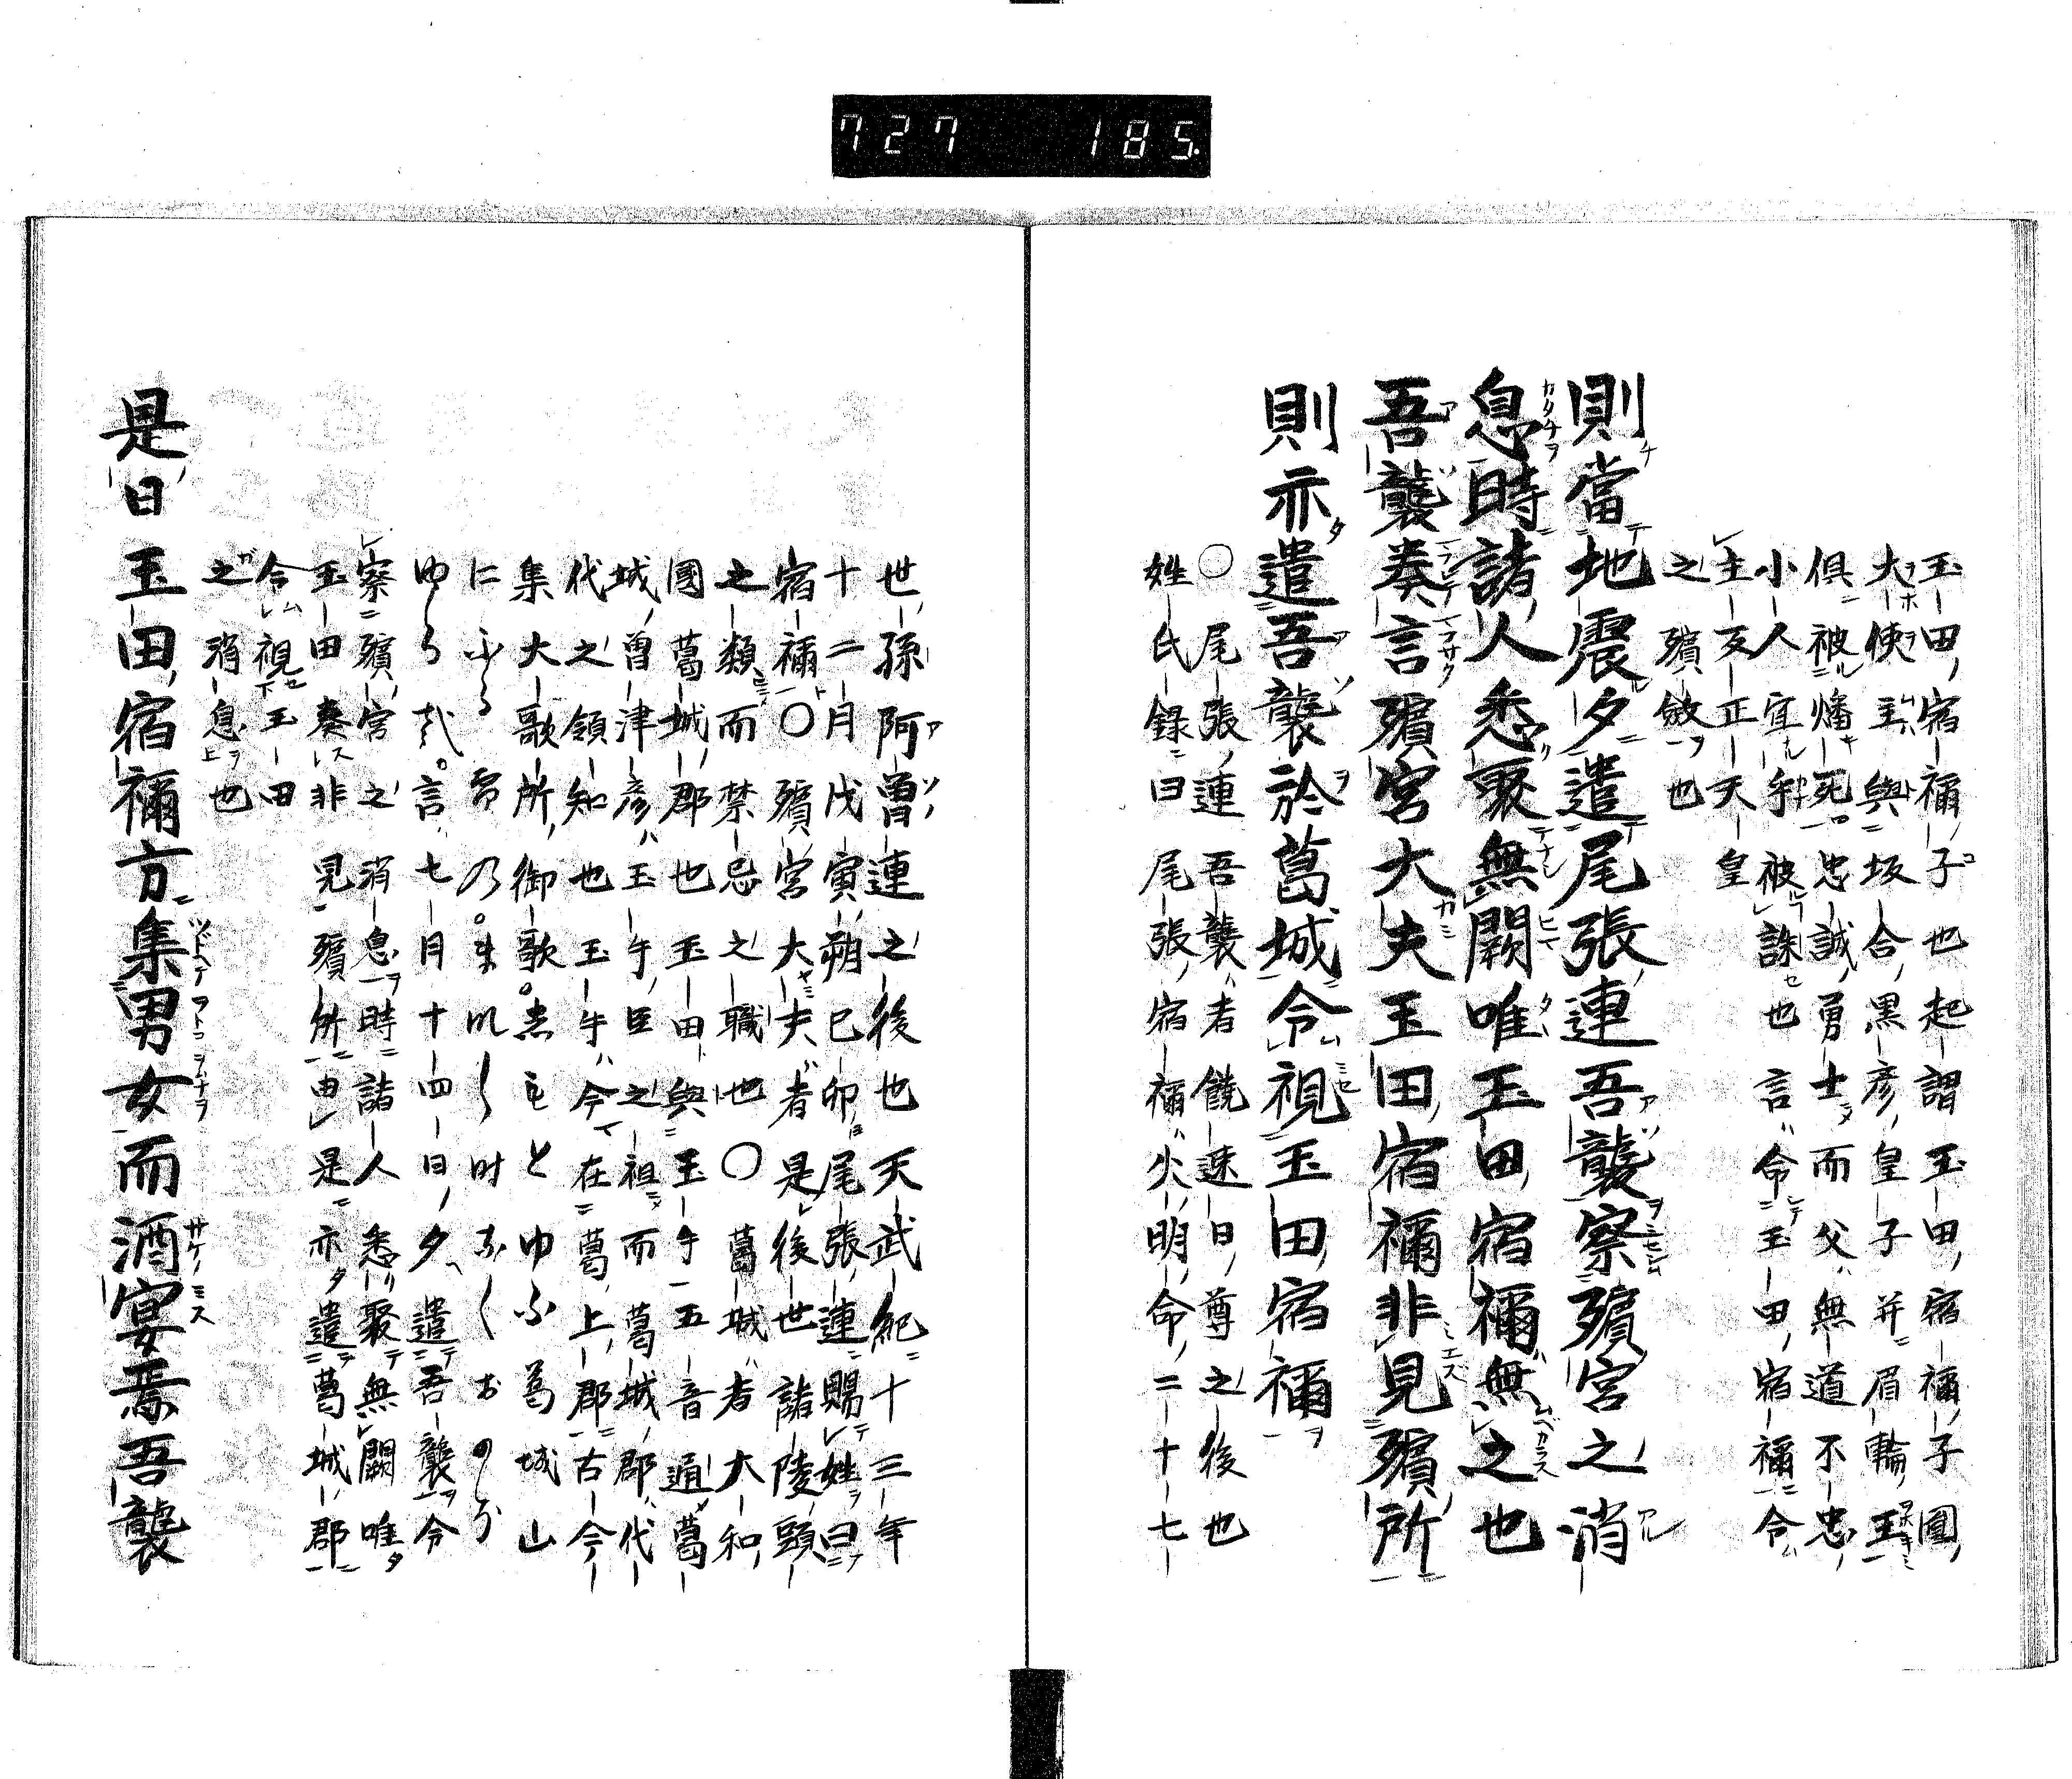 727 185.
玉田宿禰子也起謂玉田宿禰子圓
大使主與坂合黒彦皇子并眉輪王
俱被燔死忠誠勇士而父無道不忠
小人宜乎被誅也言命玉田宿禰令
主反正天皇
之殯斂也
則當地震夕遣尾張連吾襲察殯宮之消
息時諸人悉聚無闕唯玉田宿禰無之也
吾襲奏言殯宮大夫玉田宿禰非見殯所
則亦遣吾襲於葛城令視玉田宿禰
○尾張連吾襲者饒速日尊之後也
姓氏録曰尾張宿禰火明命二十七
世孫阿曽連之後也天武紀十三年
十二月戊寅朔己卯尾張連賜姓曰
宿禰○殯宮大夫者是後世諸陵頭
之類而禁忌之職也○葛城者大和
國葛城郡也玉田與玉手五音通葛
城曽津彦玉手臣之祖而葛城郡代
代之領知也玉手今在葛上郡古今
集大歌所御歌
ゆふ葛城山
言七月十四日夕遣吾襲令
察殯宮之消息時諸人悉聚無闕唯
玉田奏非見殯所由是亦遣葛城郡
令視玉田
之消息也
是日玉田宿禰方集男女而酒宴焉吾襲